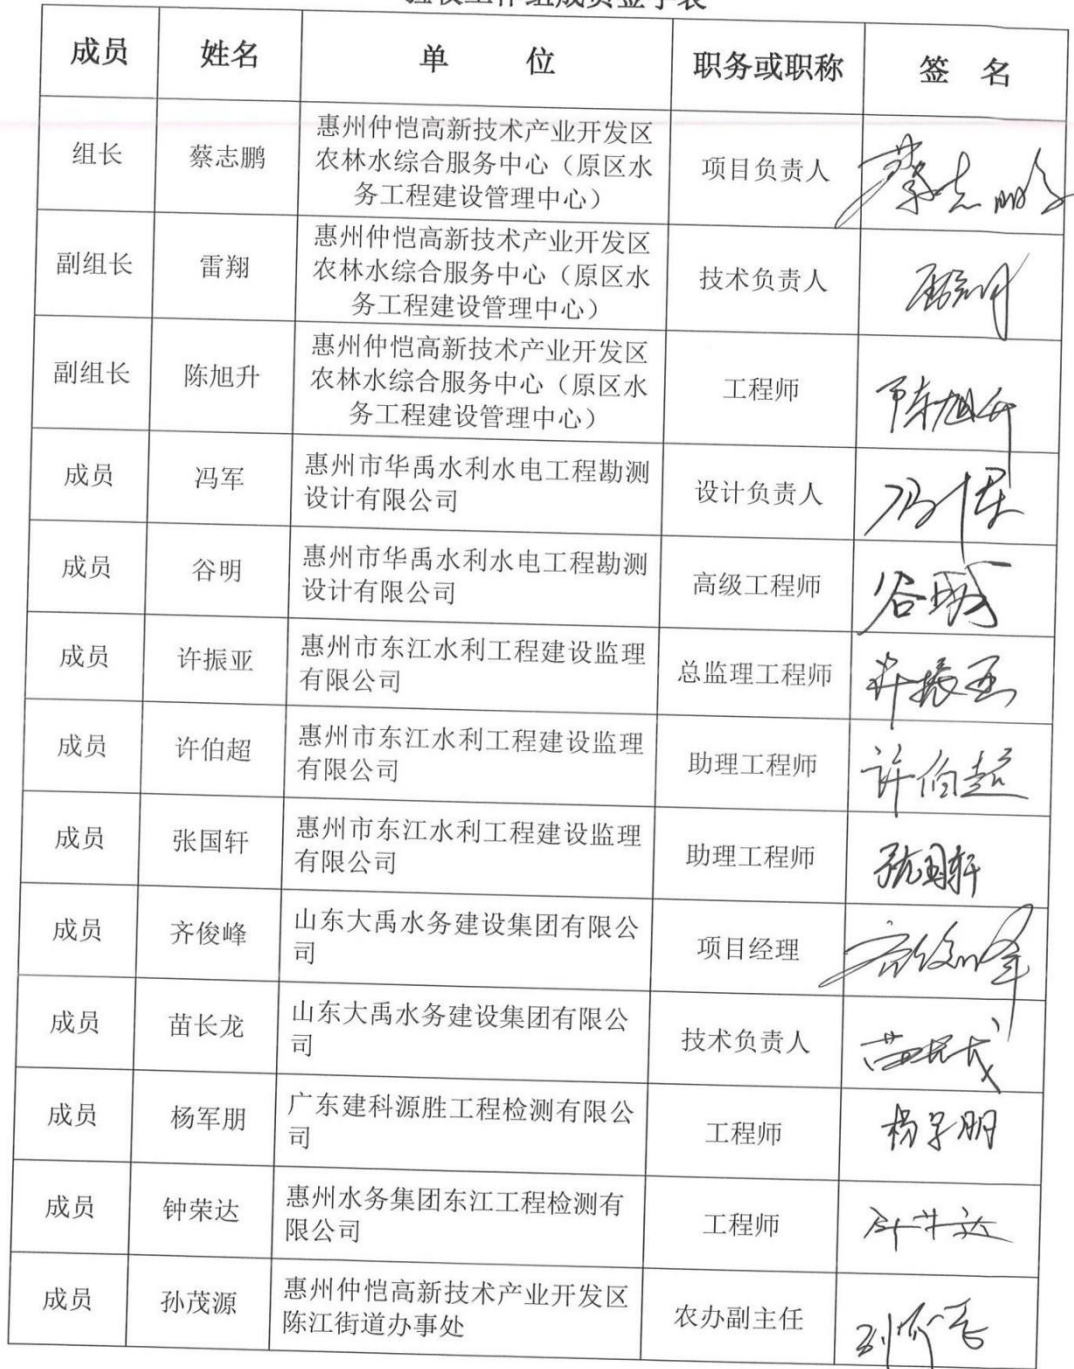 验收工作组成员签字表
成员 姓名 单 位 职务或职称 签 名
组长 蔡志鹏 惠州仲恺高新技术产业开发区
农林水综合服务中心（原区水
务工程建设管理中心） 项目负责人 蔡志鹏
副组长 雷翔 惠州仲恺高新技术产业开发区
农林水综合服务中心（原区水
务工程建设管理中心） 技术负责人
副组长 陈旭升 惠州仲恺高新技术产业开发区
农林水综合服务中心（原区水
务工程建设管理中心） 工程师 陈旭升
成员 冯军 惠州市华禹水利水电工程勘测
设计有限公司 设计负责人 冯军
成员 谷明 惠州市华禹水利水电工程勘测
设计有限公司 高级工程师 谷明
成员 许振亚 惠州市东江水利工程建设监理
有限公司 总监理工程师 许振亚
成员 许伯超 惠州市东江水利工程建设监理
有限公司 助理工程师 许伯超
成员 张国轩 惠州市东江水利工程建设监理
有限公司 助理工程师 张国轩
成员 齐俊峰 山东大禹水务建设集团有限公
司 项目经理 齐俊峰
成员 苗长龙 山东大禹水务建设集团有限公
司 技术负责人 苗长龙
成员 杨军朋 广东建科源胜工程检测有限公
司 工程师 杨军朋
成员 钟荣达 惠州水务集团东江工程检测有
限公司 工程师 钟荣达
成员 孙茂源 惠州仲恺高新技术产业开发区
陈江街道办事处 农办副主任